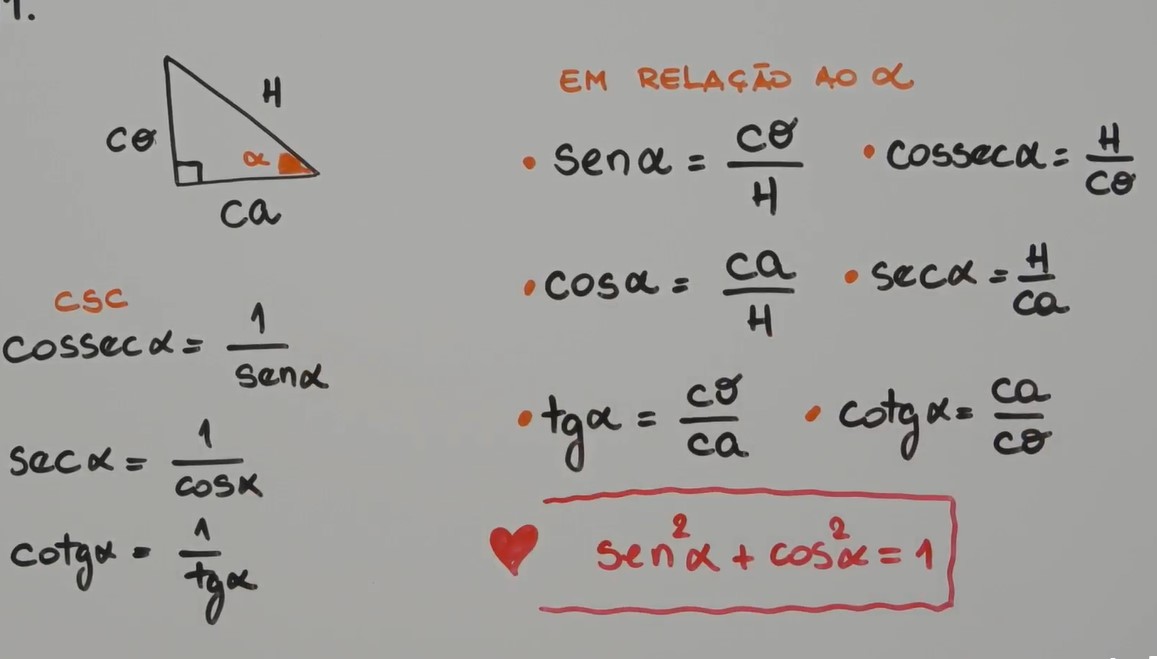 1.
H
CO
α
CA
CSC
COSSEC α = 1/sen α
sec α = 1/cos α
cotg α = 1/tg α
EM RELAÇÃO AO α
• sen α = CO/H
• COSSEC α = H/CO
• cos α = CA/H
• sec α = H/CA
• tg α = CO/CA
• cotg α = CA/CO
♥ sen²α + cos²α = 1